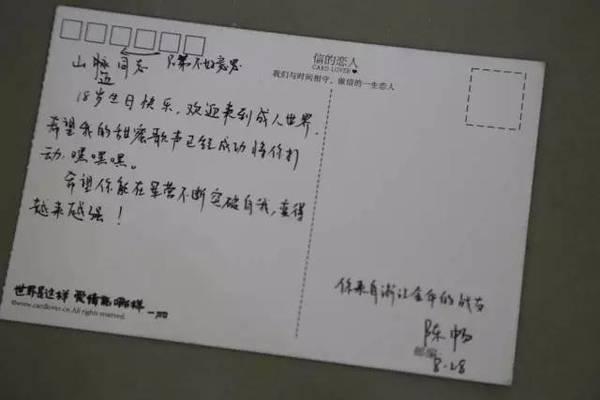 信的恋人
CARD LOVER
我们与时间相守，做信的一生恋人
山 同志
18岁生日快乐，欢迎来到成人世界，
希望我的甜蜜歌声已经成功将你打
动，嘿嘿嘿。
希望你能在星营不断突破自我，变得
越来越强！
你来自浙江金华的战友
陈畅
邮编
8.28
世界是这样 爱情是哪样
©www.cardlover.cn.All rights reserved.